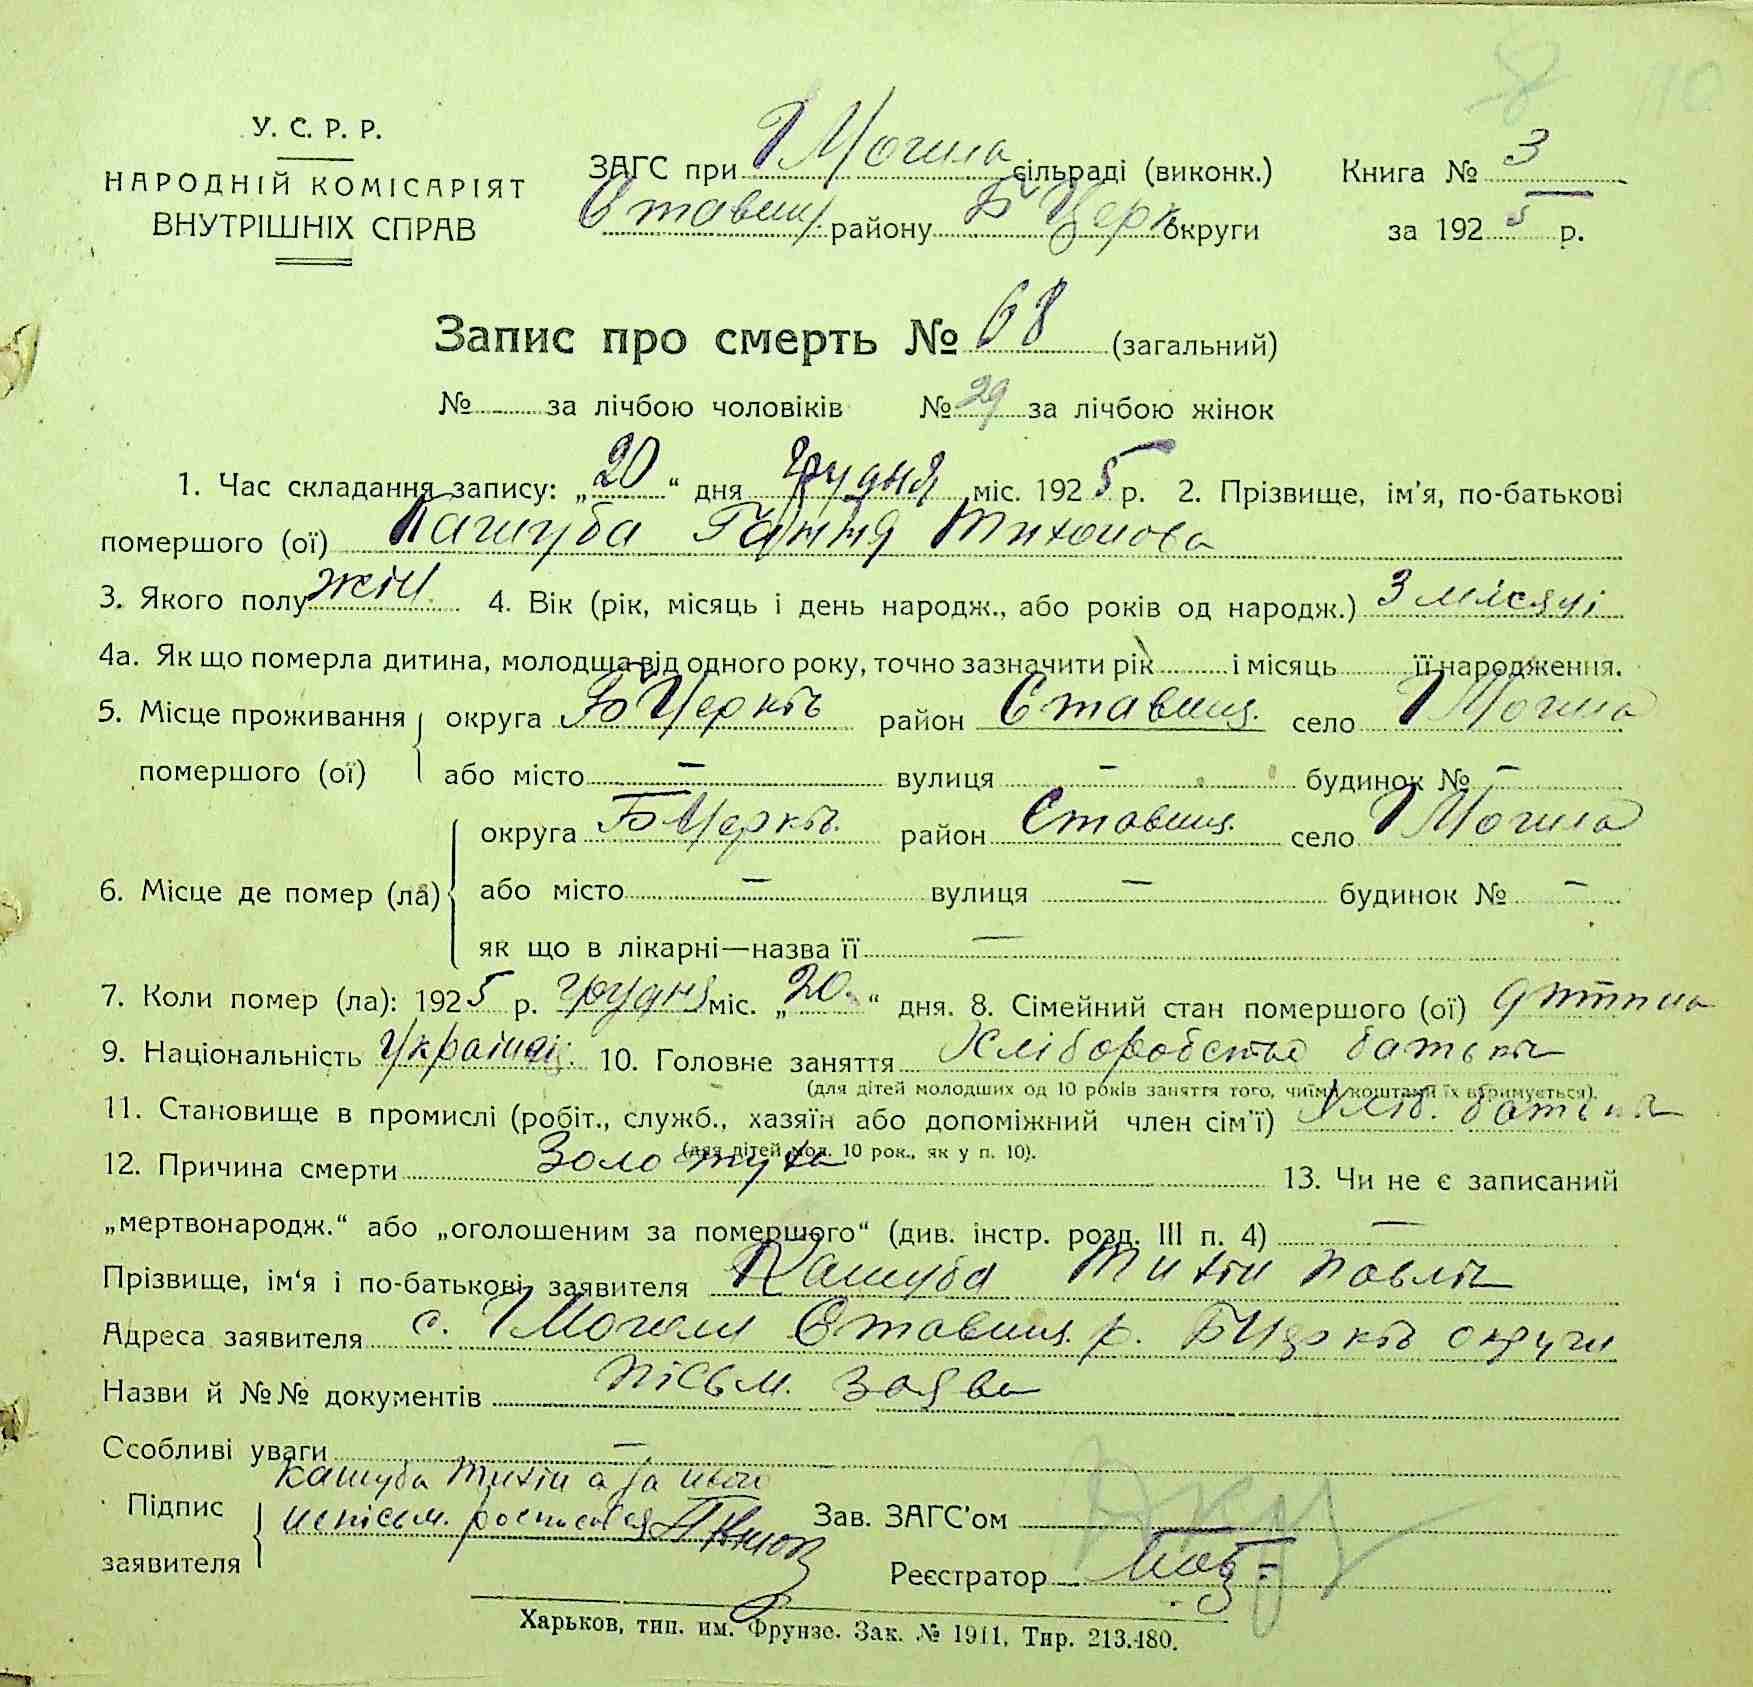 У. С. Р. Р.
НАРОДНІЙ КОМІСАРІЯТ
ВНУТРІШНІХ СПРАВ
ЗАГС при І Могила сільраді (виконк.) Книга № 3
Ставищ. району Б Церк округи за 1925 р.
Запис про смерть № 68 (загальний)
№ за лічбою чоловіків № 29 за лічбою жінок
1. Час складання запису: „20“ дня Грудня міс. 1925 р. 2. Прізвище, ім'я, по-батькові
помершого (ої) Кашуба Ганна Тихонова
3. Якого полу жін. 4. Вік (рік, місяць і день народж., або років од народж.) 3 місяці
4а. Як що померла дитина, молодща від одного року, точно зазначити рік і місяць її народження.
5. Місце проживання округа Б Церкв район Ставищ. село І Могила
помершого (ої) або місто — вулиця — будинок № —
округа Б Церкв. район Ставищ. село І Могила
6. Місце де помер (ла) або місто — вулиця — будинок № —
як що в лікарні—назва її —
7. Коли помер (ла): 1925 р. грудня міс. „20“ дня. 8. Сімейний стан помершого (ої) дитина
9. Національність Україн. 10. Головне заняття Хліборобство батьків
(для дітей молодших од 10 років заняття того, чиїми коштами їх втримується).
11. Становище в промислі (робіт., служб., хазяїн або допоміжний член сім'ї) Хліб. батьків
(для дітей мол. 10 рок., як у п. 10).
12. Причина смерти Золотуха 13. Чи не є записаний
„мертвонародж.“ або „оголошеним за помершого“ (див. інстр. розд. III п. 4) —
Прізвище, ім'я і по-батькові заявителя Кашуба Тихін Павлів
Адреса заявителя с. І Могили Ставищ. р. Б Церкв округи
Назви й №№ документів пісьм. заява
Ссобливі уваги —
Кашуба Тихін а за його
Підпис неписьм. росписався
заявителя
Зав. ЗАГС'ом
Реєстратор
Харьков, тип. им. Фрунзе. Зак. № 1911, Тир. 213.480.